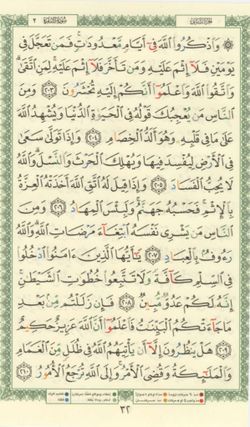 سورة البقرة ٢
۞ وَاذْكُرُوا اللَّهَ فِي أَيَّامٍ مَعْدُودَاتٍ فَمَن تَعَجَّلَ فِي
يَوْمَيْنِ فَلَا إِثْمَ عَلَيْهِ وَمَن تَأَخَّرَ فَلَا إِثْمَ عَلَيْهِ لِمَنِ اتَّقَىٰ
وَاتَّقُوا اللَّهَ وَاعْلَمُوا أَنَّكُمْ إِلَيْهِ تُحْشَرُونَ ٢٠٣ وَمِنَ
النَّاسِ مَن يُعْجِبُكَ قَوْلُهُ فِي الْحَيَاةِ الدُّنْيَا وَيُشْهِدُ اللَّهَ
عَلَىٰ مَا فِي قَلْبِهِ وَهُوَ أَلَدُّ الْخِصَامِ ٢٠٤ وَإِذَا تَوَلَّىٰ سَعَىٰ
فِي الْأَرْضِ لِيُفْسِدَ فِيهَا وَيُهْلِكَ الْحَرْثَ وَالنَّسْلَ وَاللَّهُ
لَا يُحِبُّ الْفَسَادَ ٢٠٥ وَإِذَا قِيلَ لَهُ اتَّقِ اللَّهَ أَخَذَتْهُ الْعِزَّةُ
بِالْإِثْمِ فَحَسْبُهُ جَهَنَّمُ وَلَبِئْسَ الْمِهَادُ ٢٠٦ وَمِنَ
النَّاسِ مَن يَشْرِي نَفْسَهُ ابْتِغَاءَ مَرْضَاتِ اللَّهِ وَاللَّهُ
رَءُوفٌ بِالْعِبَادِ ٢٠٧ يَا أَيُّهَا الَّذِينَ آمَنُوا ادْخُلُوا
فِي السِّلْمِ كَافَّةً وَلَا تَتَّبِعُوا خُطُوَاتِ الشَّيْطَانِ
إِنَّهُ لَكُمْ عَدُوٌّ مُّبِينٌ ٢٠٨ فَإِن زَلَلْتُم مِّن بَعْدِ
مَا جَاءَتْكُمُ الْبَيِّنَاتُ فَاعْلَمُوا أَنَّ اللَّهَ عَزِيزٌ حَكِيمٌ
٢٠٩ هَلْ يَنظُرُونَ إِلَّا أَن يَأْتِيَهُمُ اللَّهُ فِي ظُلَلٍ مِّنَ الْغَمَامِ
وَالْمَلَائِكَةُ وَقُضِيَ الْأَمْرُ وَإِلَى اللَّهِ تُرْجَعُ الْأُمُورُ ٢١٠
٣٢